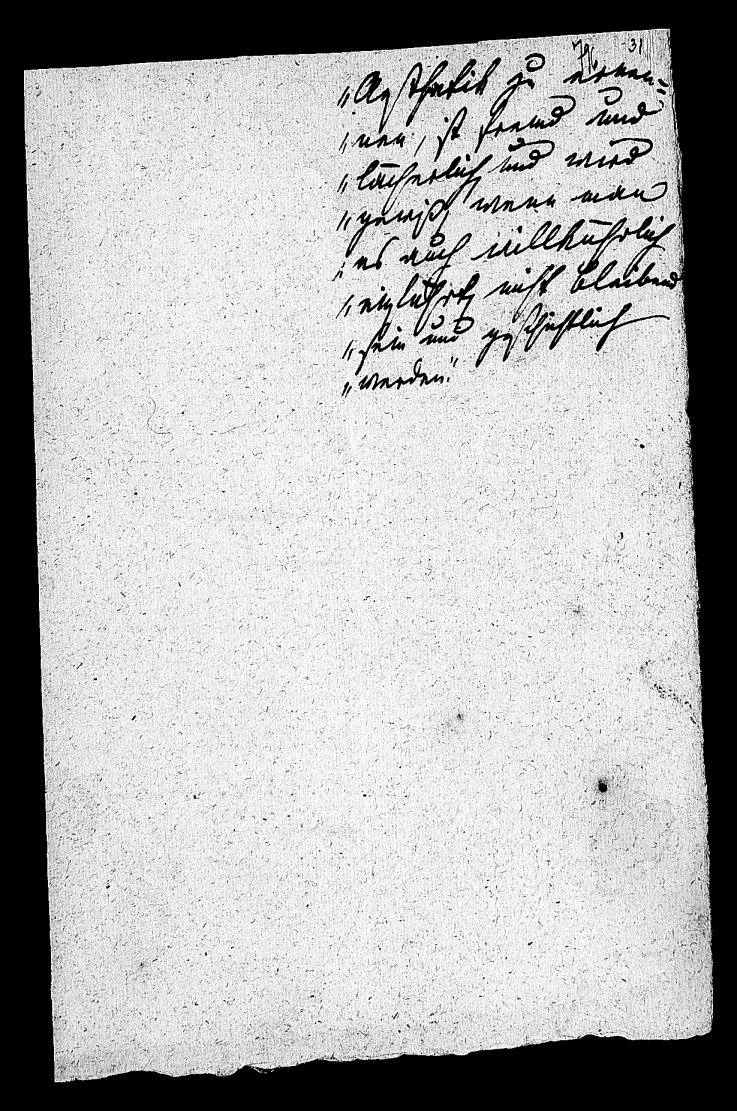 31
„Aesthetik zu nennen=
„nen, ist fremd und
„lächerlich und wird
„gewiß, wenn man
„es auch willkührlich
„einführt, nicht bleibend
„sein und geschichtlich
„werden."